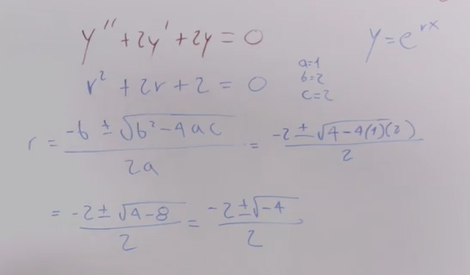 y'' + 2y' + 2y = 0
y = e^{rx}
r² + 2r + 2 = 0
a=1
b=2
c=2
r = \frac{-b ± \sqrt{b² - 4ac}}{2a} = \frac{-2 ± \sqrt{4 - 4(1)(2)}}{2}
= \frac{-2 ± \sqrt{4 - 8}}{2} = \frac{-2 ± \sqrt{-4}}{2}